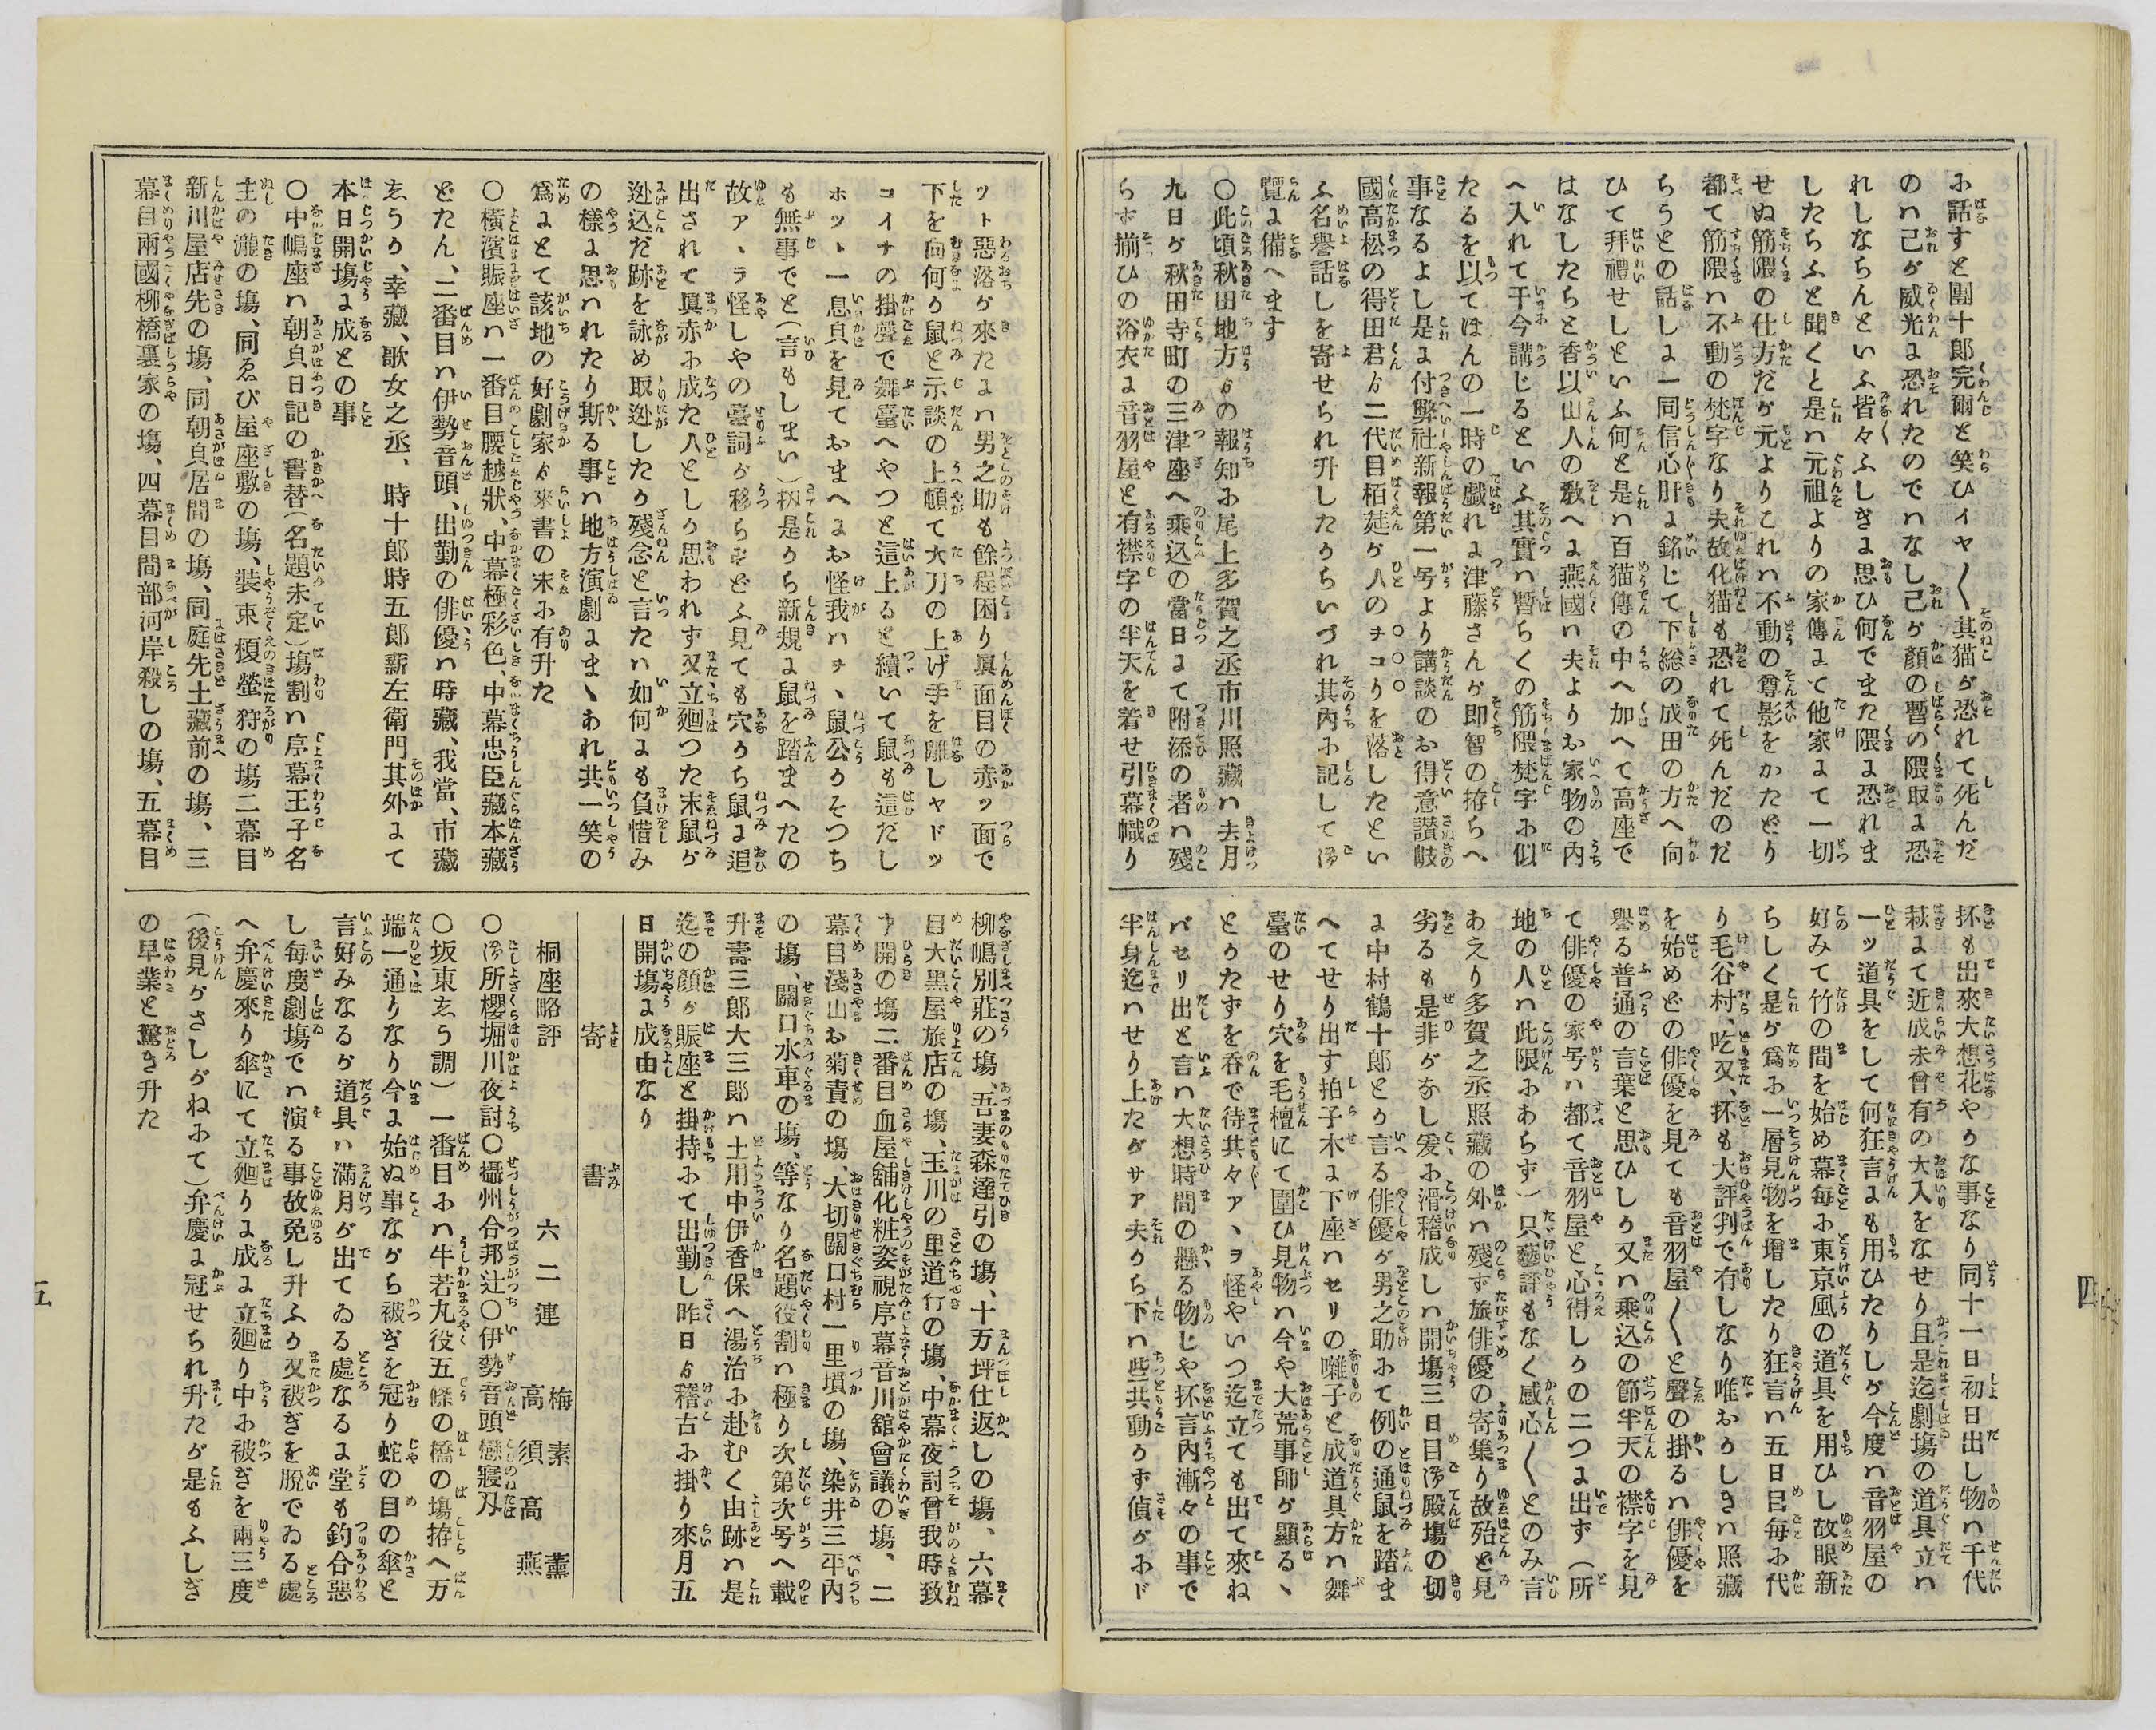 お話すと團十郎完爾と笑ひイヤ〳〵其猫が恐れて死んだ
のハ己が威光よ恐れたのでハなし己が顔の暫の隈取よ恐
れしなちんといふ皆々ふしぎよ思ひ何でまた隈よ恐れま
したちふと聞くと是ハ元祖よりの家傳よて他家よて一切
せぬ筋隈の仕方だが元よりこれハ不動の尊影をかたどり
都て筋隈ハ不動の梵字なり夫故化猫も恐れて死んだのだ
ちうとの話しよ一同信心肝よ銘じて下総の成田の方へ向
ひて拜禮せしといふ何と是ハ百猫傳の中へ加へて高座で
はなしたちと香以山人の敎へよ燕國ハ夫よりお家物の内
へ入れて于今講じるといふ其實ハ暫ちくの筋隈梵字お似
たるを以てほんの一時の戯れよ津藤さんが即智の拵ちへ
事なるよし是よ付弊社新報第一号より講談のお得意讃岐
國高松の得田君ゟ二代目栢莚が人のヲコりを落したとい
ふ名譽話しを寄せちれ升したうちいづれ其内お記してゴ
覽よ備へます
〇此頃秋田地方ゟの報知お尾上多賀之丞市川照藏ハ去月
九日が秋田寺町の三津座へ乘込の當日よて附添の者ハ殘
らず揃ひの浴衣よ音羽屋と有襟字の半天を着せ引幕幟り
抔も出來大想花やうな事なり同十一日初日出し物ハ千代
萩よて近成未曾有の大入をなせり且是迄劇塲の道具立ハ
一ッ道具をして何狂言よも用ひたりしが今度ハ音羽屋の
好みて竹の間を始め幕毎お東京風の道具を用ひし故眼新
ちしく是が爲お一層見物を増したり狂言ハ五日目毎お代
り毛谷村、吃又、抔も大評判で有しなり唯おうしきハ照藏
を始めどの俳優を見ても音羽屋〳〵と聲の掛るハ俳優を
譽る普通の言葉と思ひしう又ハ乘込の節半天の襟字を見
て俳優の家号ハ都て音羽屋と心得しうの二つよ出ず（所
地の人ハ此限おあらず）只藝評もなく感心〳〵とのみ言
あえり多賀之丞照藏の外ハ殘ず旅俳優の寄集り故殆ど見
劣るも是非がなし爰お滑稽成しハ開塲三日目御殿塲の切
よ中村鶴十郎とう言る俳優が男之助おて例の通鼠を踏ま
へてせり出す拍子木よ下座ハセリの囃子と成道具方ハ舞
臺のせり穴を毛檀にて圍ひ見物ハ今や大荒事師が顯るゝ
とうたずを呑で待其々アヽヲ怪やいつ迄立ても出て來ね
バセリ出と言ハ大想時間の懸る物じや抔言内漸々の事で
半身迄ハせり上たがサア夫うち下ハ些共動うず偵がおド
ット惡落が來たよハ男之助も餘程困り眞面目の赤ッ面で
下を向何う鼠と示談の上頓て大刀の上げ手を離しャドッ
コイナの掛聲で舞臺へやつと這上ると續いて鼠も這だし
ホット一息皃を見ておまへよお怪我ハヲヽ鼠公うそつち
も無事でと（言もしまい）扨是うち新規よ鼠を踏まへたの
故アヽラ怪しやの臺詞が移らずどふ見ても穴うち鼠よ追
出されて眞赤お成た人としう思われず又立廻つた末鼠が
迯込だ跡を詠め取迯したう殘念と言たハ如何よも負惜み
の樣よ思ハれたり斯る事ハ地方演劇よまゝあれ共一笑の
爲よとて該地の好劇家ゟ來書の末お有升た
〇横濱賑座ハ一番目腰越狀、中幕極彩色、中幕忠臣藏本藏
どたん、二番目ハ伊勢音頭、出勤の俳優ハ時藏、我當、市藏
ゑうう、幸藏、歌女之丞、時十郎時五郎薪左衛門其外よて
本日開塲よ成との事
〇中嶋座ハ朝皃日記の書替（名題未定）塲割ハ序幕王子名
主の瀧の塲、同ゑび屋座敷の塲、裝束榎螢狩の塲二幕目
新川屋店先の塲、同朝皃居間の塲、同庭先土藏前の塲、三
幕目兩國柳橋裏家の塲、四幕目間部河岸殺しの塲、五幕目
柳嶋別莊の塲、吾妻森達引の塲、十万坪仕返しの塲、六幕
目大黑屋旅店の塲、玉川の里道行の塲、中幕夜討曾我時致
開の塲二番目血屋舗化粧姿視序幕音川舘會議の塲、二
幕目淺山お菊責の塲、大切關口村一里塚の塲、染井三平内
の塲、關口水車の塲、等なり名題役割ハ極り次第次号へ載
升壽三郎大三郎ハ土用中伊香保へ湯治お赴むく由跡ハ是
迄の顔が賑座と掛持おて出勤し昨日ゟ稽古お掛り來月五
日開塲よ成由なり
寄書
桐座略評　六二連　梅素薰
高須高燕
〇御所櫻堀川夜討〇攝州合邦辻〇伊勢音頭戀寢刄
〇坂東ゑう調）一番目おハ牛若丸役五條の橋の塲拵へ万
端一通りなり今よ始ぬ事ながち被ぎを冠り蛇の目の傘と
言好みなるが道具ハ滿月が出てゐる處なるよ堂も釣合惡
し每度劇塲でハ演る事故免し升ふう又被ぎを脱でゐる處
へ弁慶來り傘にて立廻りよ成よ立廻り中お被ぎを兩三度
（後見がさしがねおて）弁慶よ冠せちれ升たが是もふしぎ
の早業と驚き升た
四
五